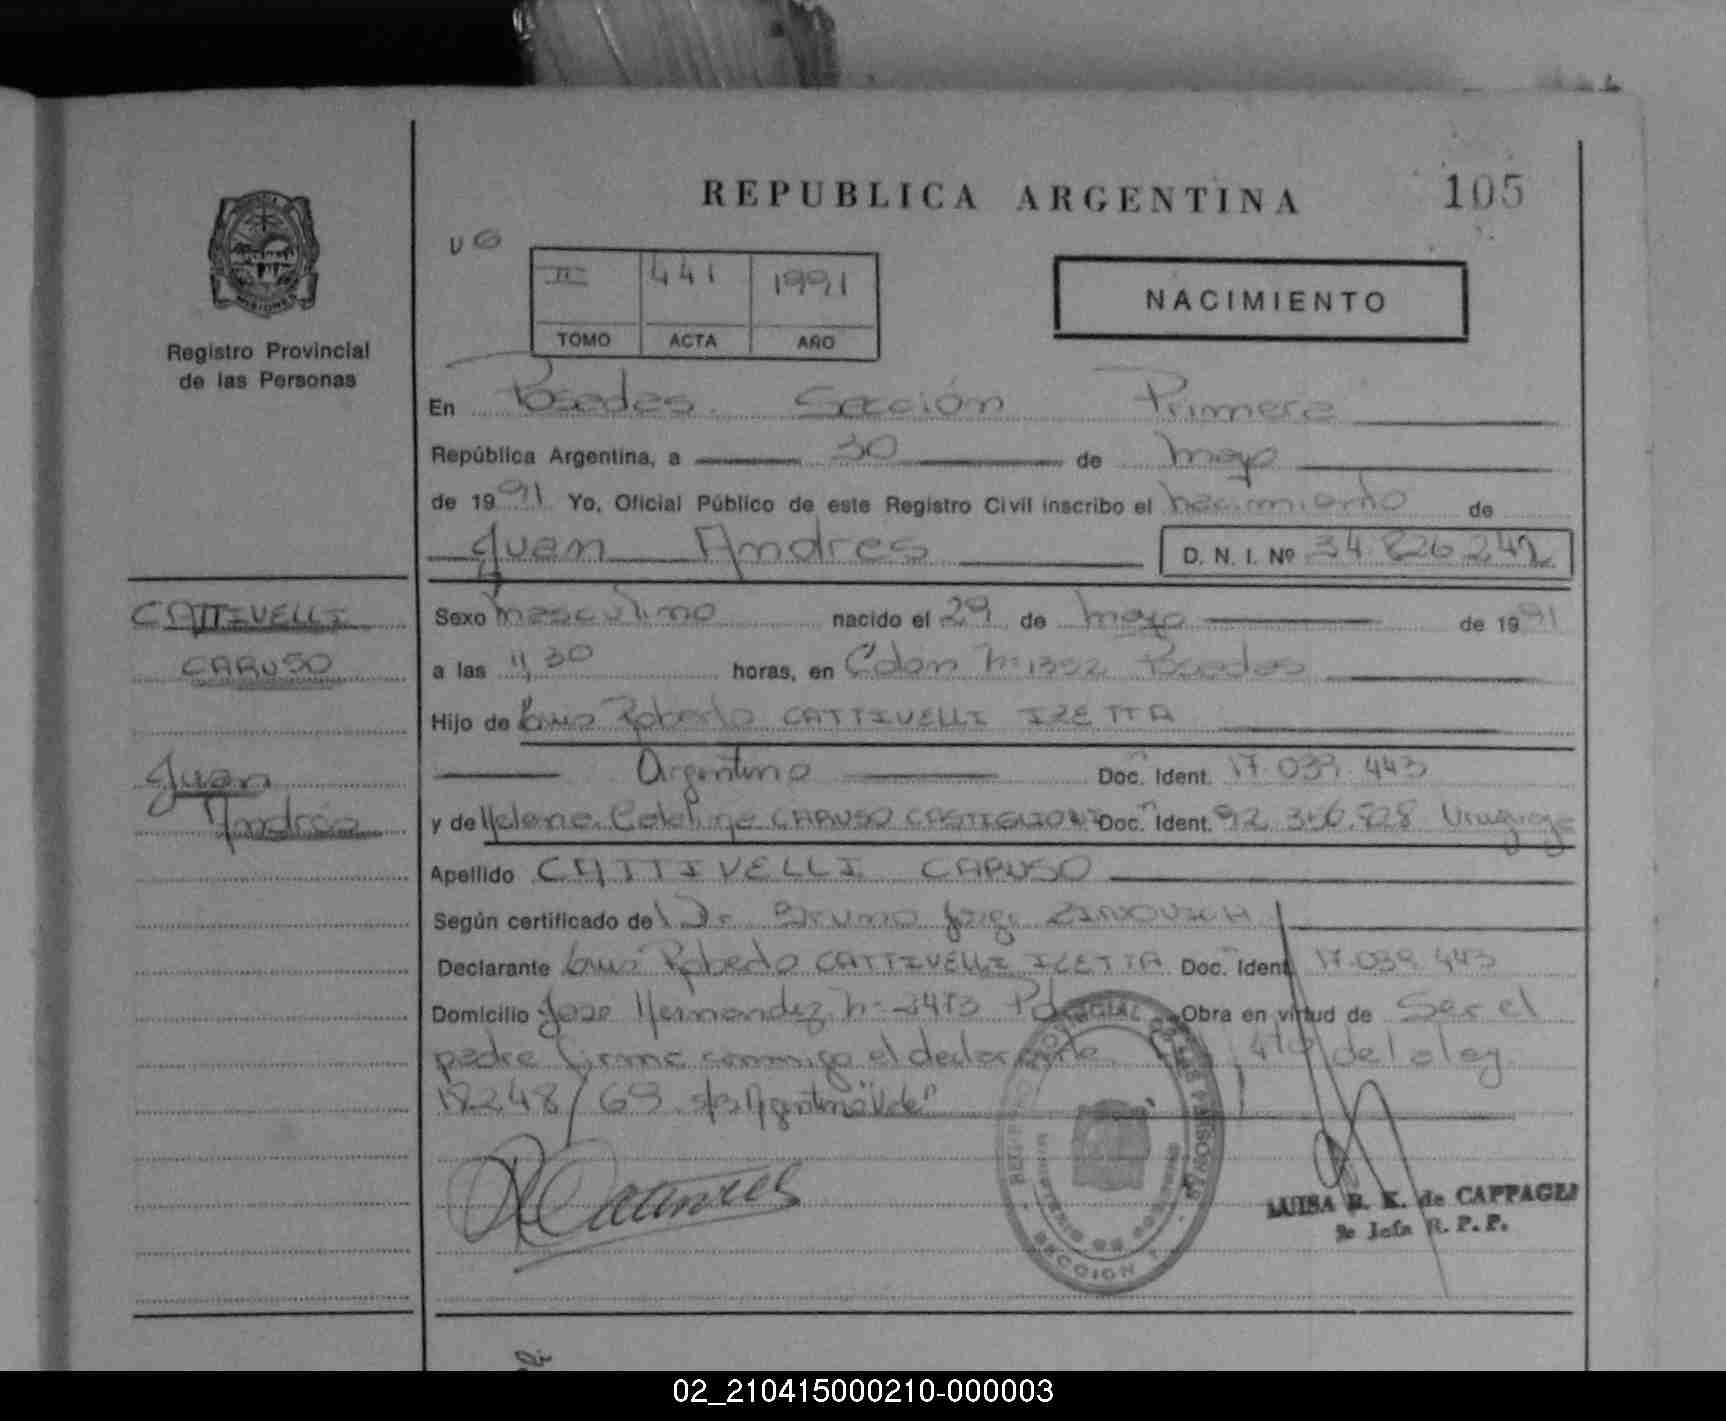 REPUBLICA ARGENTINA
105
MISIONES
Registro Provincial
de las Personas
II 441 1991
TOMO ACTA AÑO
NACIMIENTO
En Posadas Sección Primera
República Argentina, a 30 de mayo
de 1991 Yo, Oficial Público de este Registro Civil inscribo el nacimiento de
Juan Andres D. N. I. Nº 34.826.242
CATTIVELLI
CARUSO
Juan
Andrés
Sexo masculino nacido el 29 de mayo de 1991
a las 11,30 horas, en Colon Nº 1352 Posadas
Hijo de Luis Roberto CATTIVELLI IZETTA
Argentino Doc. Ident. 17.039.443
y de CARUSO CASTIGLIONI Doc. Ident. 92.356.828 Uruguaya
Apellido CATTIVELLI CARUSO
Según certificado del Dr. Bruno Jorge
Declarante Luis Roberto CATTIVELLI IZETTA Doc. Ident. 17.039.443
Domicilio Jose Hernandez Nº Obra en virtud de Ser el
padre firma conmigo el declarante de la ley
18248/69 Argentino Vale"
REGISTRO PROVINCIAL DE LAS PERSONAS
MINISTERIO DE GOBIERNO
SECCION 1
LUISA B. K. de
R. P. P.
02_210415000210-000003